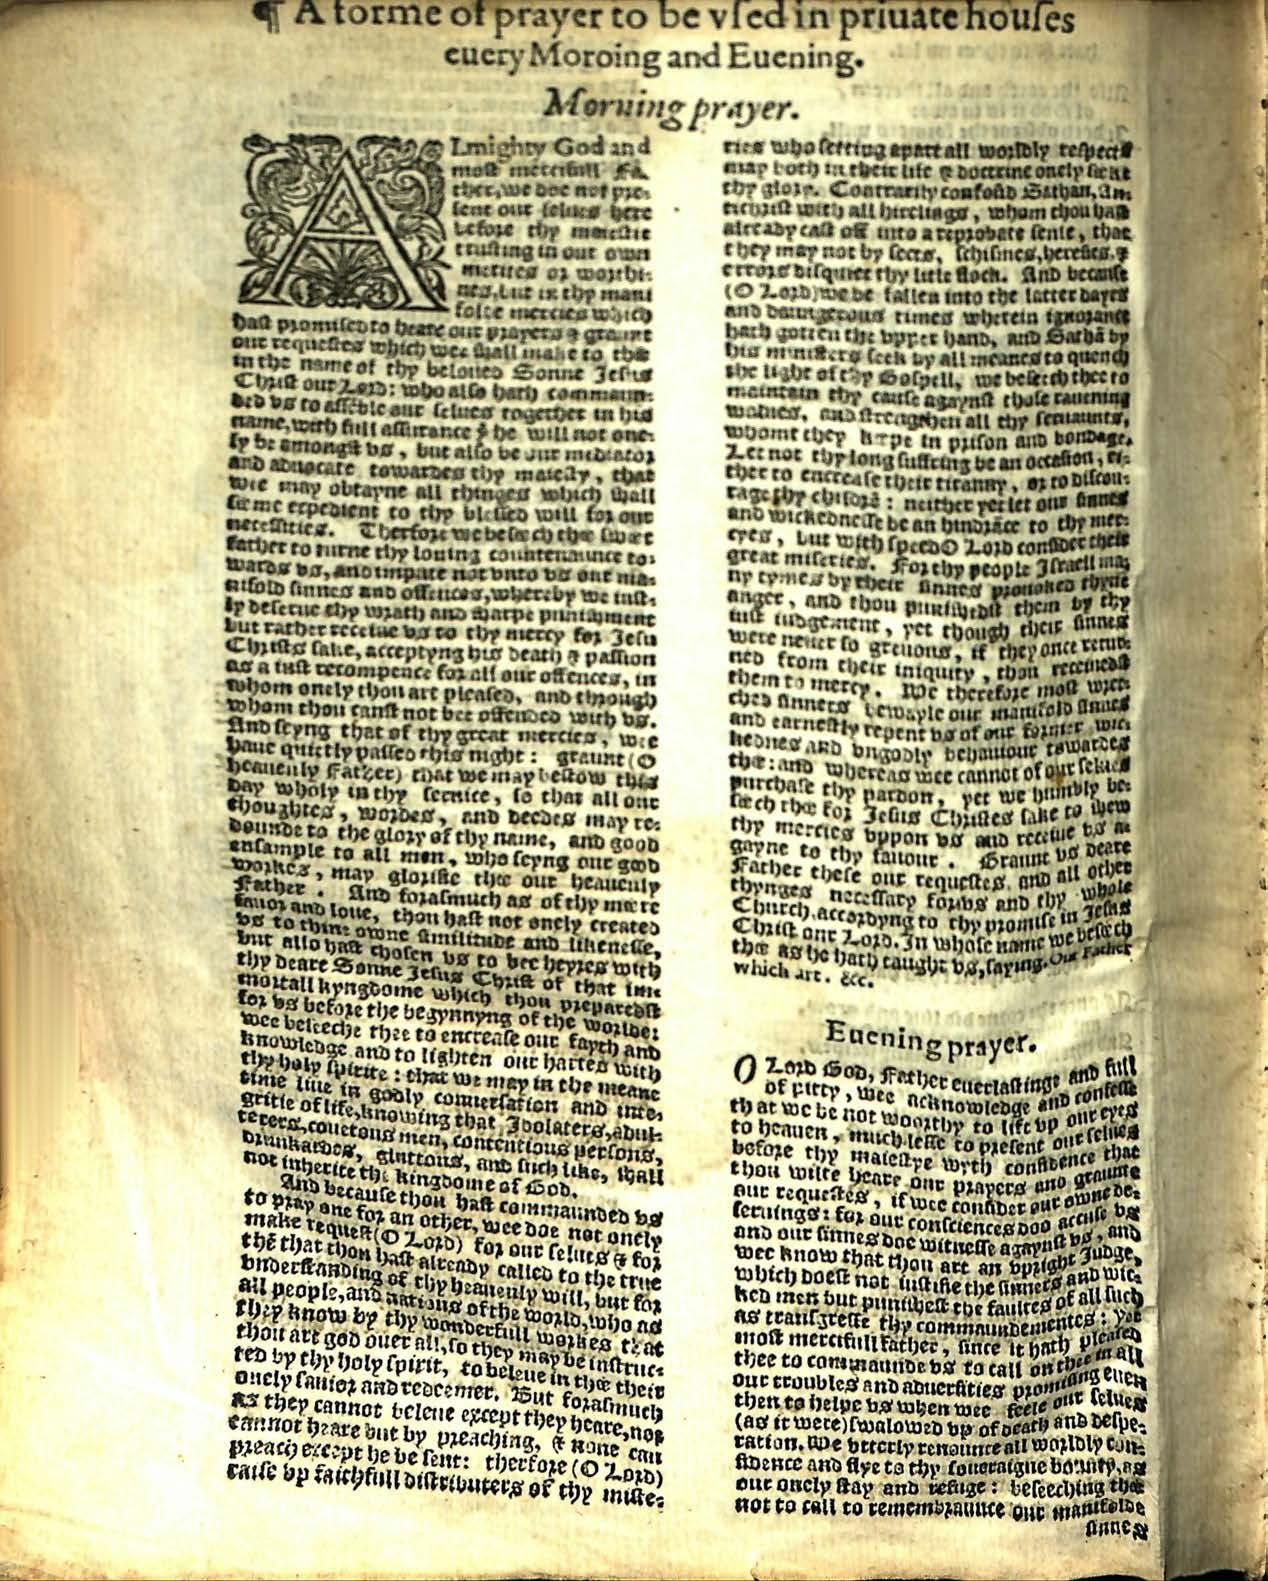 ¶ A forme of prayer to be vſed in priuate houſes
euery Moroing and Euening.
Morning prayer.
ALmighty God and
moſt mercifull Fa-
ther, we doe not pre-
ſent our ſelues here
before thy maieſtie
truſting in our own
merites or worthi-
nes, but in thy mani
folde mercies which
haſt promiſed to heare our prayers & graunt
our requeſtes which wee ſhall make to thee
in the name of thy beloued Sonne Jeſus
Chriſt our Lord: who alſo hath commaun-
ded vs to aſſēble our ſelues together in his
name, with full aſſurance yͭ he will not one-
ly be amongſt vs, but alſo be our mediator
and aduocate towardes thy maieſty, that
wee may obtayne all thinges which ſhall
ſeeme expedient to thy bleſſed will for our
neceſſities. Therfore we beſech thee ſweet
father to turne thy louing countenaunce to-
wards vs, and impute not vnto vs our ma-
nifold ſinnes and offences, whereby we iuſt-
ly deſerue thy wrath and ſharpe puniſhment
but rather receiue vs to thy mercy for Jeſu
Chriſts ſake, acceptyng his death & paſſion
as a iuſt recompence for all our offences, in
whom onely thou art pleaſed, and through
whom thou canſt not bee offended with vs.
And ſeyng that of thy great mercies, wee
haue quietly paſſed this night: graunt (O
heauenly Father) that we may beſtow this
day wholy in thy ſeruice, ſo that all our
thoughtes, wordes, and deedes may re-
dounde to the glory of thy name, and good
enſample to all men, who ſeyng our good
workes, may glorifie thee our heauenly
Father. And foraſmuch as of thy meere
fauor and loue, thou haſt not onely created
vs to thine owne ſimilitude and likeneſſe,
but alſo haſt choſen vs to bee heyres with
thy deare Sonne Jeſus Chriſt of that im-
mortall kyngdome which thou preparedſt
for vs before the begynnyng of the worlde:
wee beſeeche thee to encreaſe our fayth and
knowledge and to lighten our hartes with
thy holy ſpirite: that we may in the meane
time liue in godly conuerſation and inte-
gritie of life, knowing that Idolaters, adul-
terers, couetous men, contentious perſons,
drunkardes, gluttons, and ſuch like, ſhall
not inherite the kingdome of God.
And becauſe thou haſt commaunded vs
to pray one for an other, wee doe not onely
make requeſt (O Lord) for our ſelues & for
thē that thou haſt already called to the true
vnderſtanding of thy heauenly will, but for
all people, and nations of the world, who as
they know by thy wonderfull workes that
thou art god ouer all, ſo they may be inſtruc-
ted by thy holy ſpirit, to beleue in thee their
onely ſauior and redeemer. But foraſmuch
as they cannot beleue except they heare, nor
cannot heare but by preaching, & none can
preach except he be ſent: therfore (O Lord)
raiſe vp faithfull diſtributers of thy miſte-
ries who ſetting apart all worldly reſpects
may both in their life & doctrine onely ſeeke
thy glory. Contrarily confoūd Sathan, An-
tichriſt with all hirelings, whom thou haſt
already caſt off into a reprobate ſenſe, that
they may not by ſects, ſchiſmes, hereſies, &
errors diſquiet thy little flock. And becauſe
(O Lord) we be fallen into the latter dayes
and daungerous times wherein ignorance
hath gotten the vpper hand, and Sathā by
his miniſters ſeek by all meanes to quench
the light of thy Goſpell, we beſeech thee to
maintain thy cauſe agaynſt thoſe rauening
wolues, and ſtrengthen all thy ſeruaunts,
whom they keepe in priſon and bondage.
Let not thy long ſuffring be an occaſion, ei-
ther to encreaſe their tiranny, or to diſcou-
rage thy childrē: neither yet let our ſinnes
and wickedneſſe be an hindrāce to thy mer-
cyes, but with ſpeed O Lord conſider theſe
great miſeries. For thy people Iſraell ma-
ny tymes by their ſinnes prouoked thyne
anger, and thou puniſhedſt them by thy
iuſt iudgement, yet though their ſinnes
were neuer ſo greuous, if they once retur-
ned from their iniquity, thou receiuedſt
them to mercy. We therefore moſt wret-
ched ſinners bewayle our manifold ſinnes
and earneſtly repent vs of our former wic-
kednes and vngodly behauiour towardes
thee: and whereas wee cannot of our ſelues
purchaſe thy pardon, yet we humbly be-
ſeech thee for Jeſus Chriſtes ſake to ſhew
thy mercies vppon vs and receiue vs a-
gayne to thy fauour. Graunt vs deare
Father theſe our requeſtes, and all other
thynges neceſſary for vs and thy whole
Church, accordyng to thy promiſe in Jeſus
Chriſt our Lord. In whoſe name we beſeech
thee as he hath taught vs, ſaying. Our Father
which art. &c.
Euening prayer.
O Lord God, Father euerlaſtinge and full
of pitty, wee acknowledge and confeſſe
that we be not woorthy to lift vp our eyes
to heauen, much leſſe to preſent our ſelues
before thy maieſtye wyth confidence that
thou wilte heare our prayers and graunte
our requeſtes, if wee conſider our owne de-
ſeruings: for our conſciences doo accuſe vs
and our ſinnes doe witneſſe agaynſt vs, and
wee know that thou art an vpright Judge,
which doeſt not iuſtifie the ſinners and wic-
ked men but puniſheſt the faultes of all ſuch
as tranſgreſſe thy commaundementes: yet
moſt mercifull father, ſince it hath pleaſed
thee to commaunde vs to call on thee in all
our troubles and aduerſities promiſing euen
then to helpe vs when wee feele our ſelues
(as it were) ſwalowed vp of death and deſpe-
ration. We vtterly renounce all worldly con-
fidence and flye to thy ſoueraigne bounty, as
our onely ſtay and refuge: beſeeching thee
not to call to remembraunce our manifolde
ſinnes